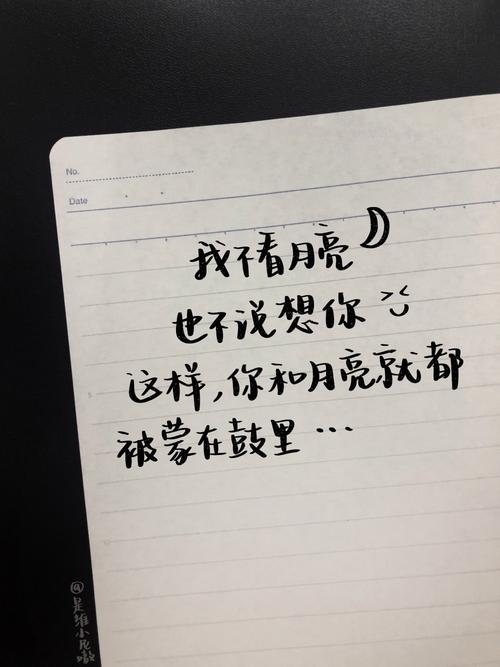 No.
Date
我不看月亮
也不说想你
这样,你和月亮就都
被蒙在鼓里...
@是维小尼嗷